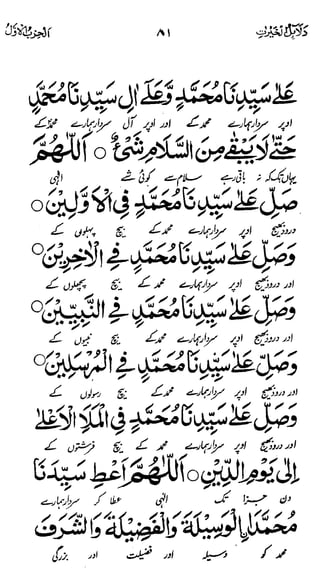 دلائل الخیرات ۸۱ الحزب الاول
عَلٰى سَيِّدِنَا مُحَمَّدٍ وَّعَلٰٓى اٰلِ سَيِّدِنَا مُحَمَّدٍ
اوپر سردار ہمارے محمد کے اور اوپر آل سردار ہمارے محمد کے
حَتّٰى لَا يَبْقٰى مِنَ السَّلَامِ شَيْءٌ ○ اَللّٰهُمَّ
یہاں تک کہ نہ باقی رہے سلام سے کوئی شے الٰہی
صَلِّ عَلٰى سَيِّدِنَا مُحَمَّدٍ فِى الْاَوَّلِيْنَ ○
درود بھیج اوپر سردار ہمارے محمد کے بیچ پہلوں کے
وَصَلِّ عَلٰى سَيِّدِنَا مُحَمَّدٍ فِى الْاٰخِرِيْنَ ○
اور درود بھیج اوپر سردار ہمارے محمد کے بیچ پچھلوں کے
وَصَلِّ عَلٰى سَيِّدِنَا مُحَمَّدٍ فِى النَّبِيِّيْنَ ○
اور درود بھیج اوپر سردار ہمارے محمد کے بیچ نبیوں کے
وَصَلِّ عَلٰى سَيِّدِنَا مُحَمَّدٍ فِى الْمُرْسَلِيْنَ ○
اور درود بھیج اوپر سردار ہمارے محمد کے بیچ رسولوں کے
وَصَلِّ عَلٰى سَيِّدِنَا مُحَمَّدٍ فِى الْمَلَاِ الْاَعْلٰى
اور درود بھیج اوپر سردار ہمارے محمد کے بیچ فرشتوں کے
اِلٰى يَوْمِ الدِّيْنِ ○ اَللّٰهُمَّ اَعْطِ سَيِّدَنَا
دن جزا تک الٰہی عطا کر سردار ہمارے
مُحَمَّدَ اِلْوَسِيْلَةَ وَالْفَضِيْلَةَ وَالشَّرَفَ
محمد کو وسیلہ اور فضیلت اور بزرگی